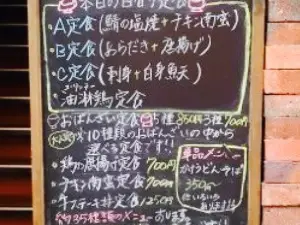 本日の日替り定食
・A定食(鯖の塩焼+チキン南蛮)
・B定食(あらだき+唐揚げ)
・C定食(刺身+白身魚天)
・油淋鶏定食
おばんざい定食 5種850円 3種700円
大人気 約10種類のおばんざいの中から
選べる定食です!!
・鶏の唐揚げ定食 700円
・チキン南蛮定食 700円
・牛ステーキ丼定食 1250円
約35種類のメニュー
単品メニュー
かけうどん・そば
350円